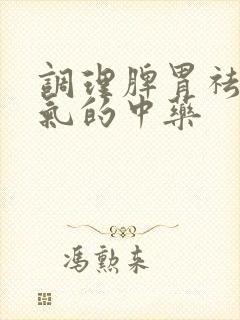 調理脾胃祛
氣的中藥
馮勲来